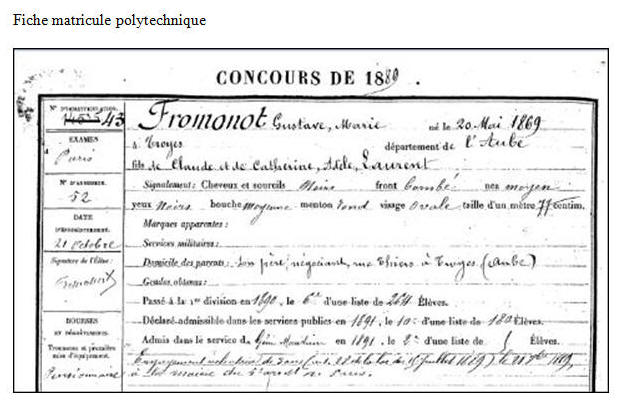 Fiche matricule polytechnique
CONCOURS DE 1889.
N° D'IMMATRICULATION.
43
EXAMEN
Paris
N° D'ADMISSION.
52
DATE
D'ENREGISTREMENT.
21 octobre
Signature de l'Élève:
Fromonot
BOURSES
ET
Trousseau et première
mise d'équipement.
Pensionnaire
Fromonot Gustave, Marie né le 20 Mai 1869
à Troyes département de l'Aube
fils de Claude et de Catherine, Adèle, Laurent
Signalement: Cheveux et sourcils Noirs front bombé nez moyen
yeux Noirs bouche moyenne menton rond visage Ovale taille d'un mètre 77 centim.
Marques apparentes:
Services militaires:
Domicile des parents: Son père, négociant, rue Thiers à Troyes (Aube)
Grades obtenus:
Passé à la 1re division en 1890, le 6e d'une liste de 264 Élèves.
Déclaré admissible dans les services publics en 1891, le 10e d'une liste de 180 Élèves.
Admis dans le service du Génie Maritime en 1891, le 2e d'une liste de 5 Élèves.
Engagement volontaire de 3 ans (art. 28 de la loi du 15 juillet 1889)
à la mairie du 5e arrdt de Paris.